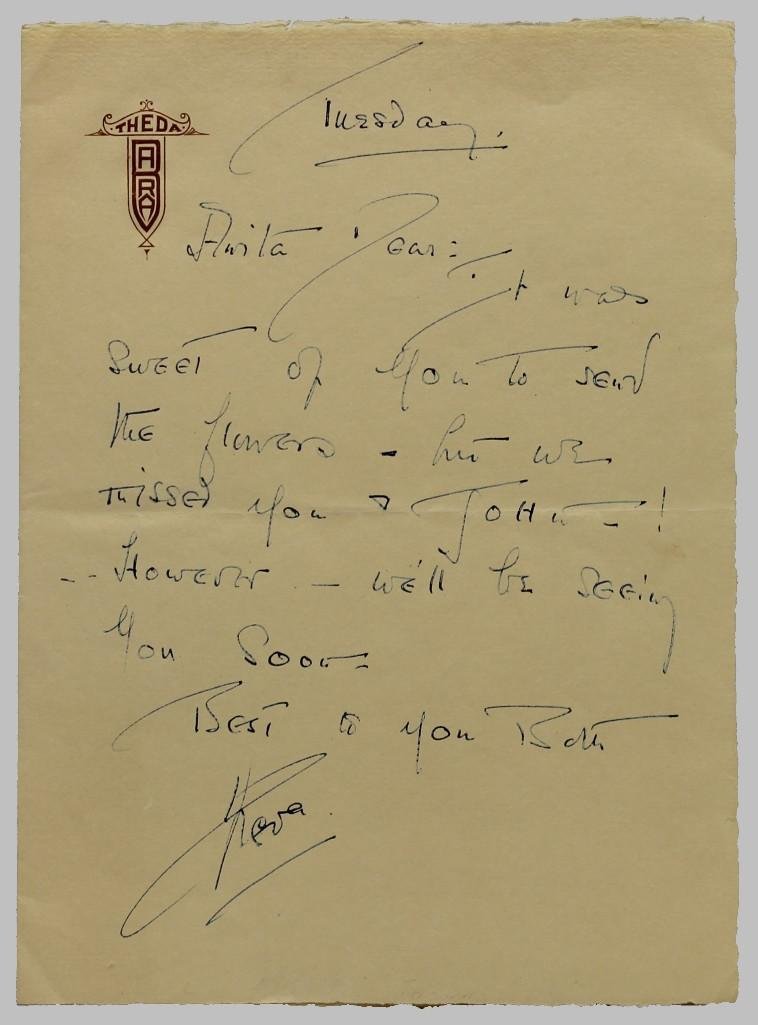 Tuesday.
THEDA
BARA
Anita Dear:
It was
sweet of you to send
the flowers - but we
missed you & John - !
-- However - we'll be seeing
you soon -
Best to you Both
Theda